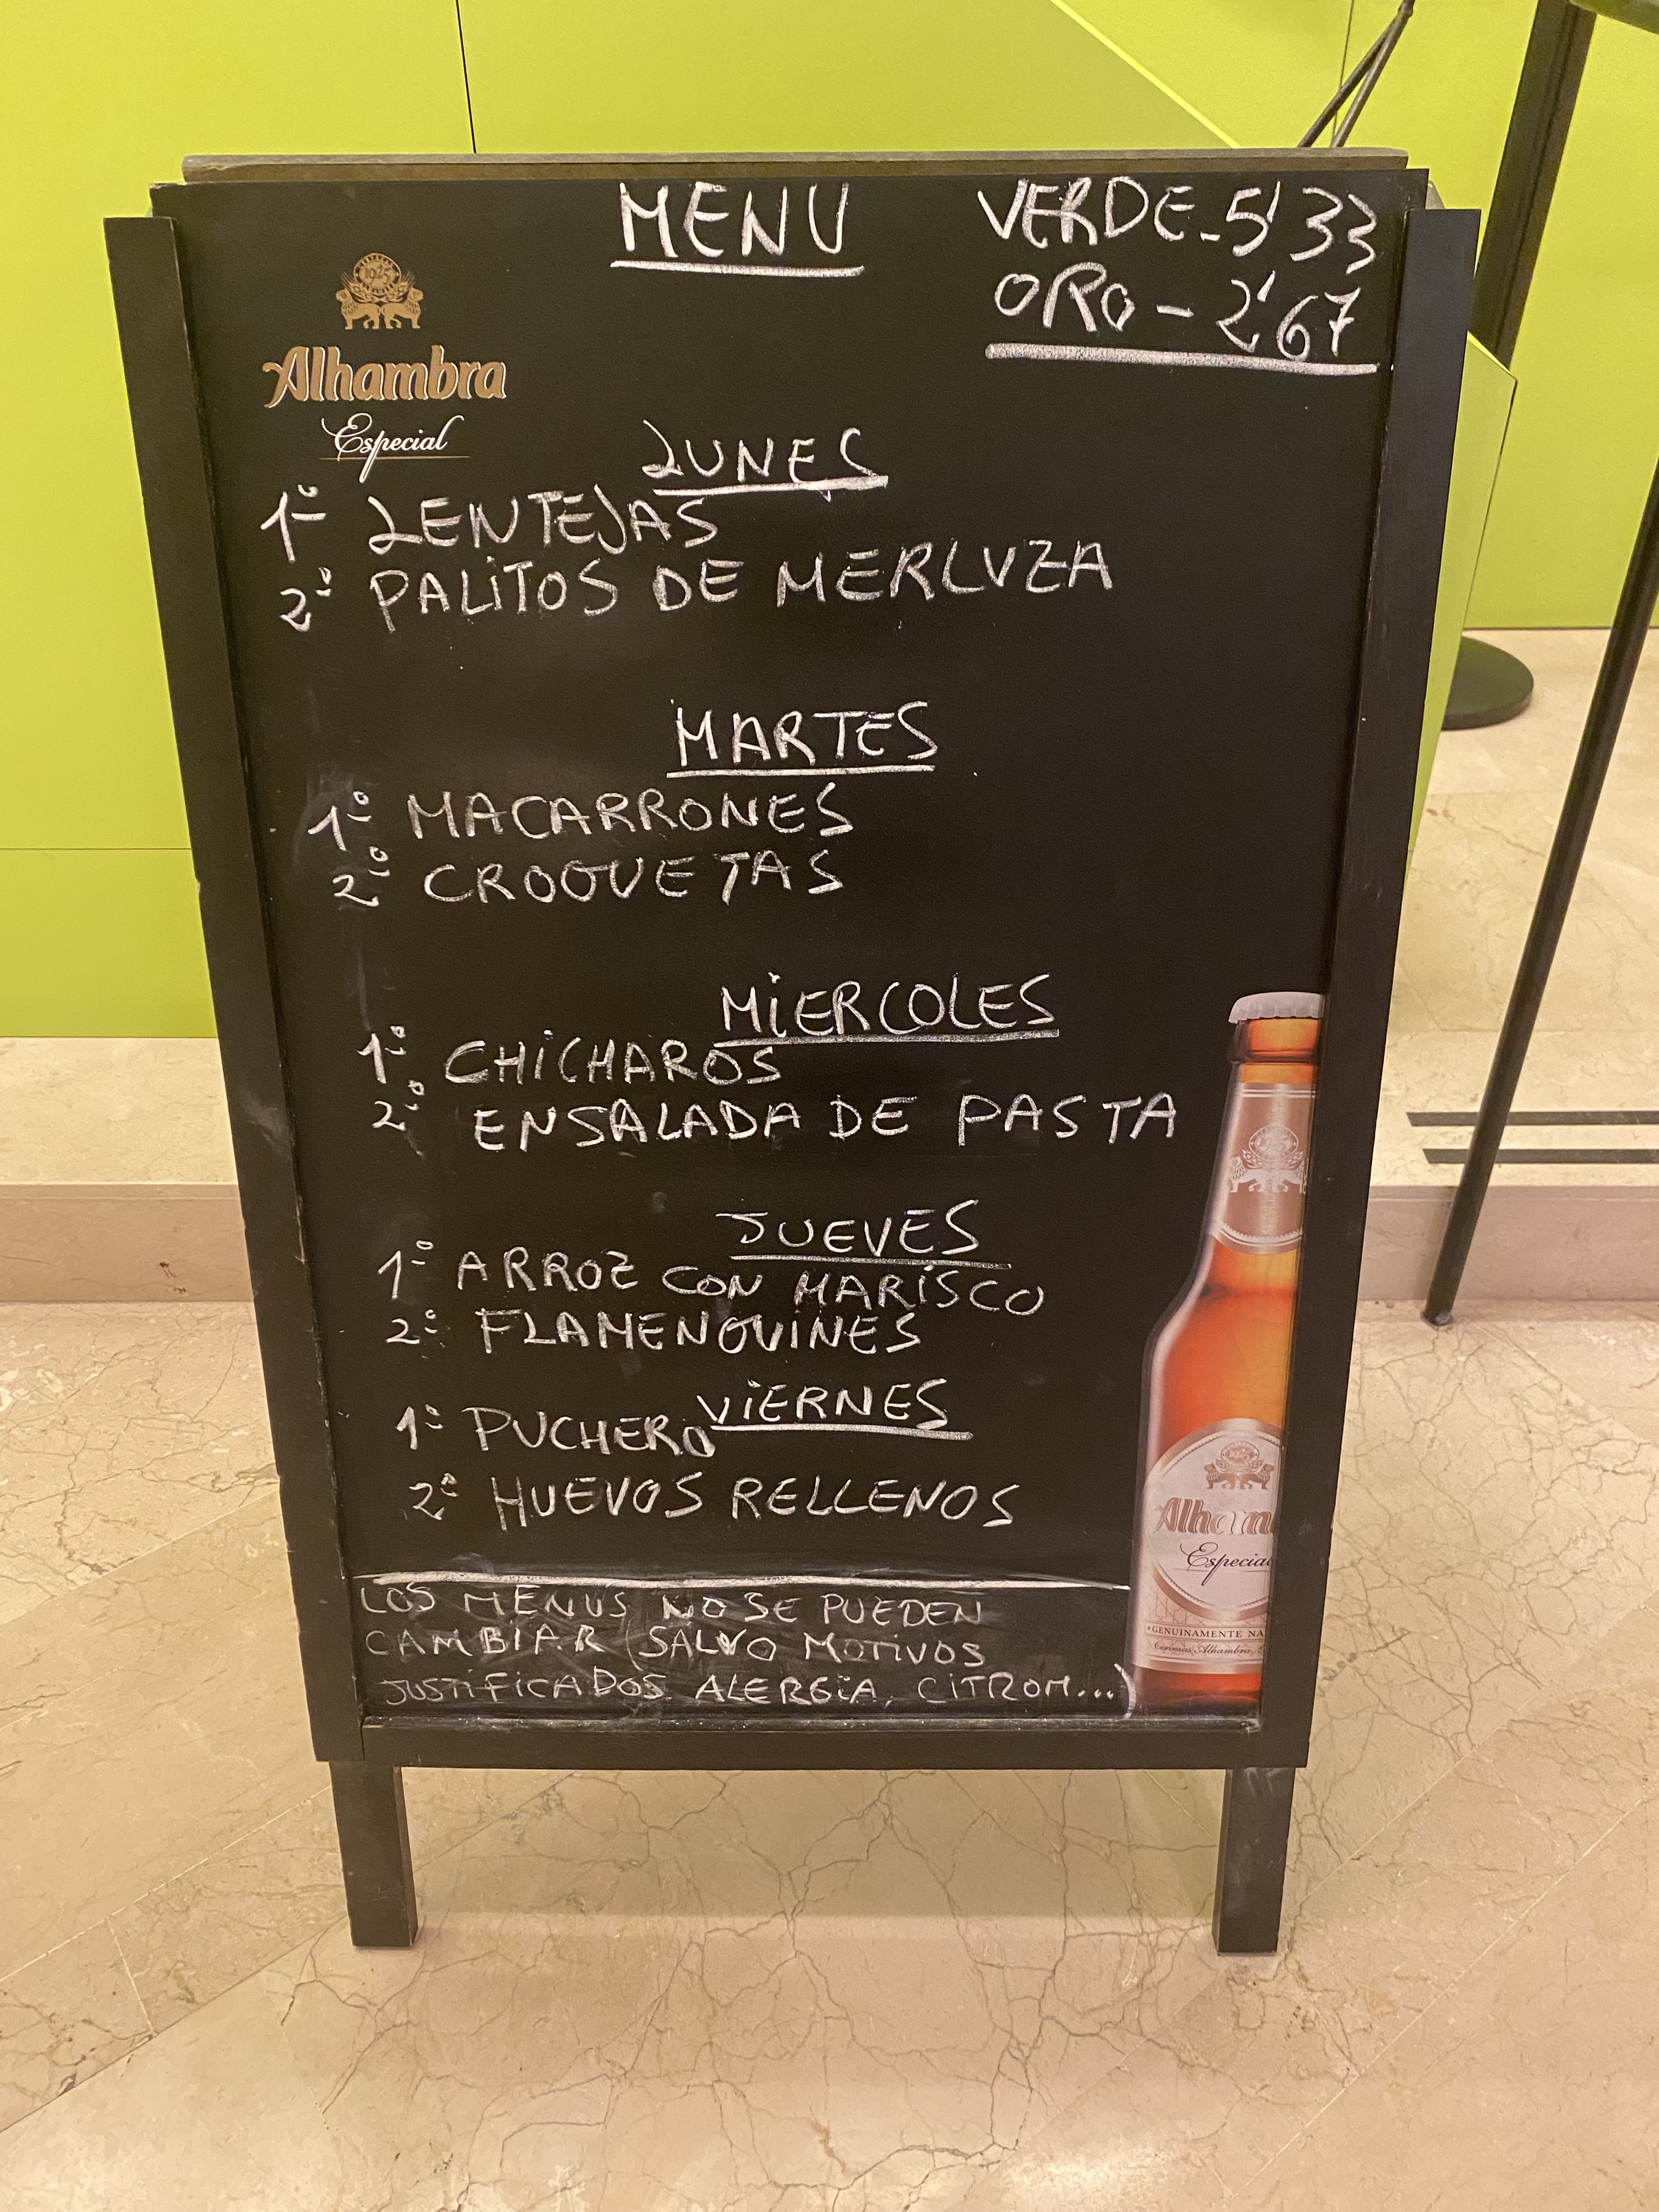 MENU
VERDE - 5'33
ORO - 2'67
1925
Alhambra
Especial
LUNES
1º LENTEJAS
2º PALITOS DE MERLUZA
MARTES
1º MACARRONES
2º CROQUETAS
MIERCOLES
1º CHICHAROS
2º ENSALADA DE PASTA
JUEVES
1º ARROZ CON MARISCO
2º FLAMENQUINES
VIERNES
1º PUCHERO
2º HUEVOS RELLENOS
LOS MENUS NO SE PUEDEN
CAMBIAR (SALVO MOTIVOS
JUSTIFICADOS. ALERGIA, CITROM...)
Especial
GENUINAMENTE NA
Cervezas Alhambra, S